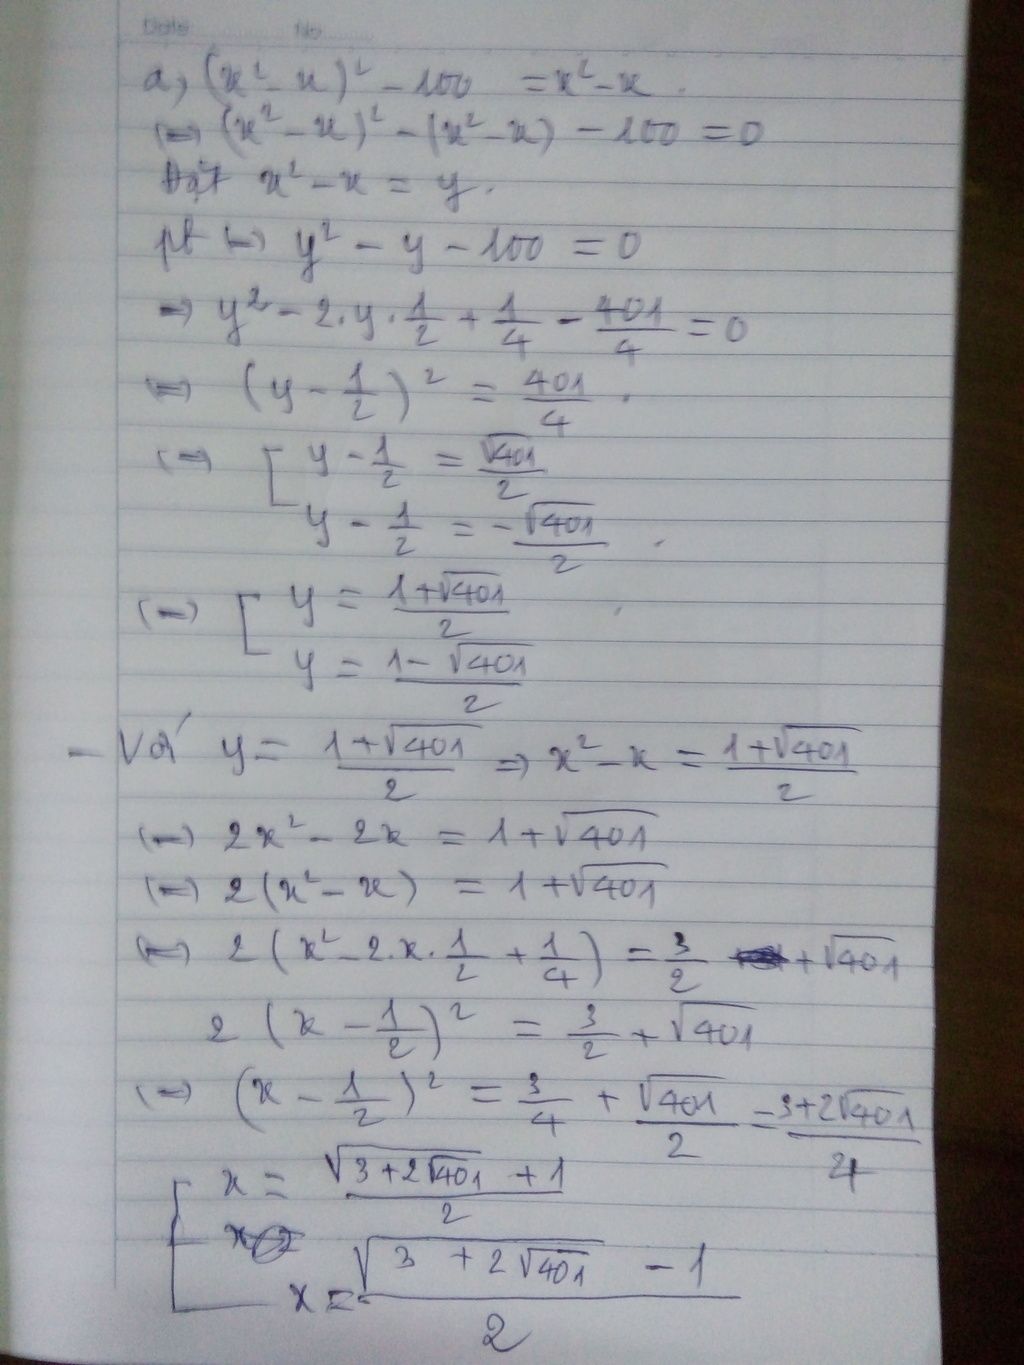 Date No
a, (x² - x)² - 100 = x² - x.
(=) (x² - x)² - (x² - x) - 100 = 0
Đặt x² - x = y.
pt (=) y² - y - 100 = 0
=> y² - 2.y.1/2 + 1/4 - 401/4 = 0
(=) (y - 1/2)² = 401/4.
(=) [ y - 1/2 = √401/2
y - 1/2 = -√401/2.
(=) [ y = (1+√401)/2
y = (1-√401)/2
- Với y = (1+√401)/2 => x² - x = (1+√401)/2
(=) 2x² - 2x = 1 + √401
(=) 2(x² - x) = 1 + √401
(=) 2(x² - 2.x.1/2 + 1/4) = 3/2 + √401
2(x - 1/2)² = 3/2 + √401
(=) (x - 1/2)² = 3/4 + √401/2 = (3+2√401)/4
[ x = (√(3+2√401) + 1)/2
x = -(√(3 + 2√401) - 1)/2